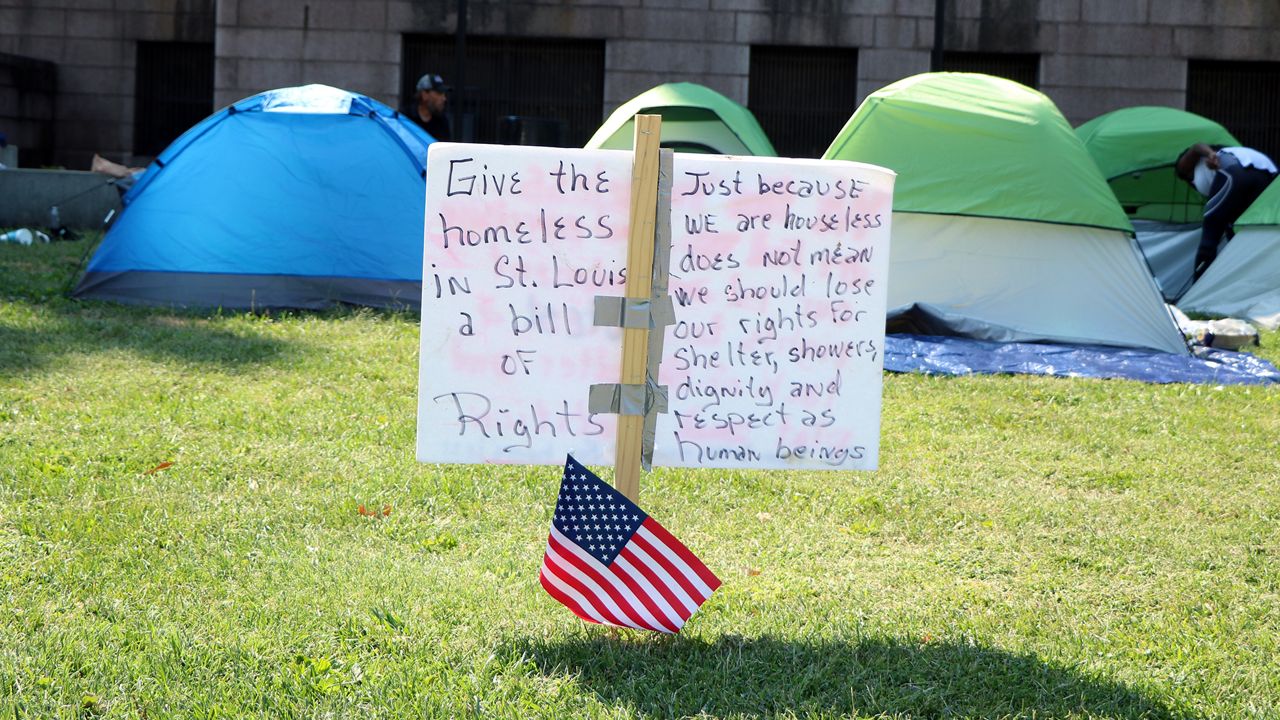 Give the
homeless
in St. Louis
a bill
of
Rights
Just because
we are houseless
does not mean
we should lose
our rights for
shelter, showers,
dignity and
respect as
human beings